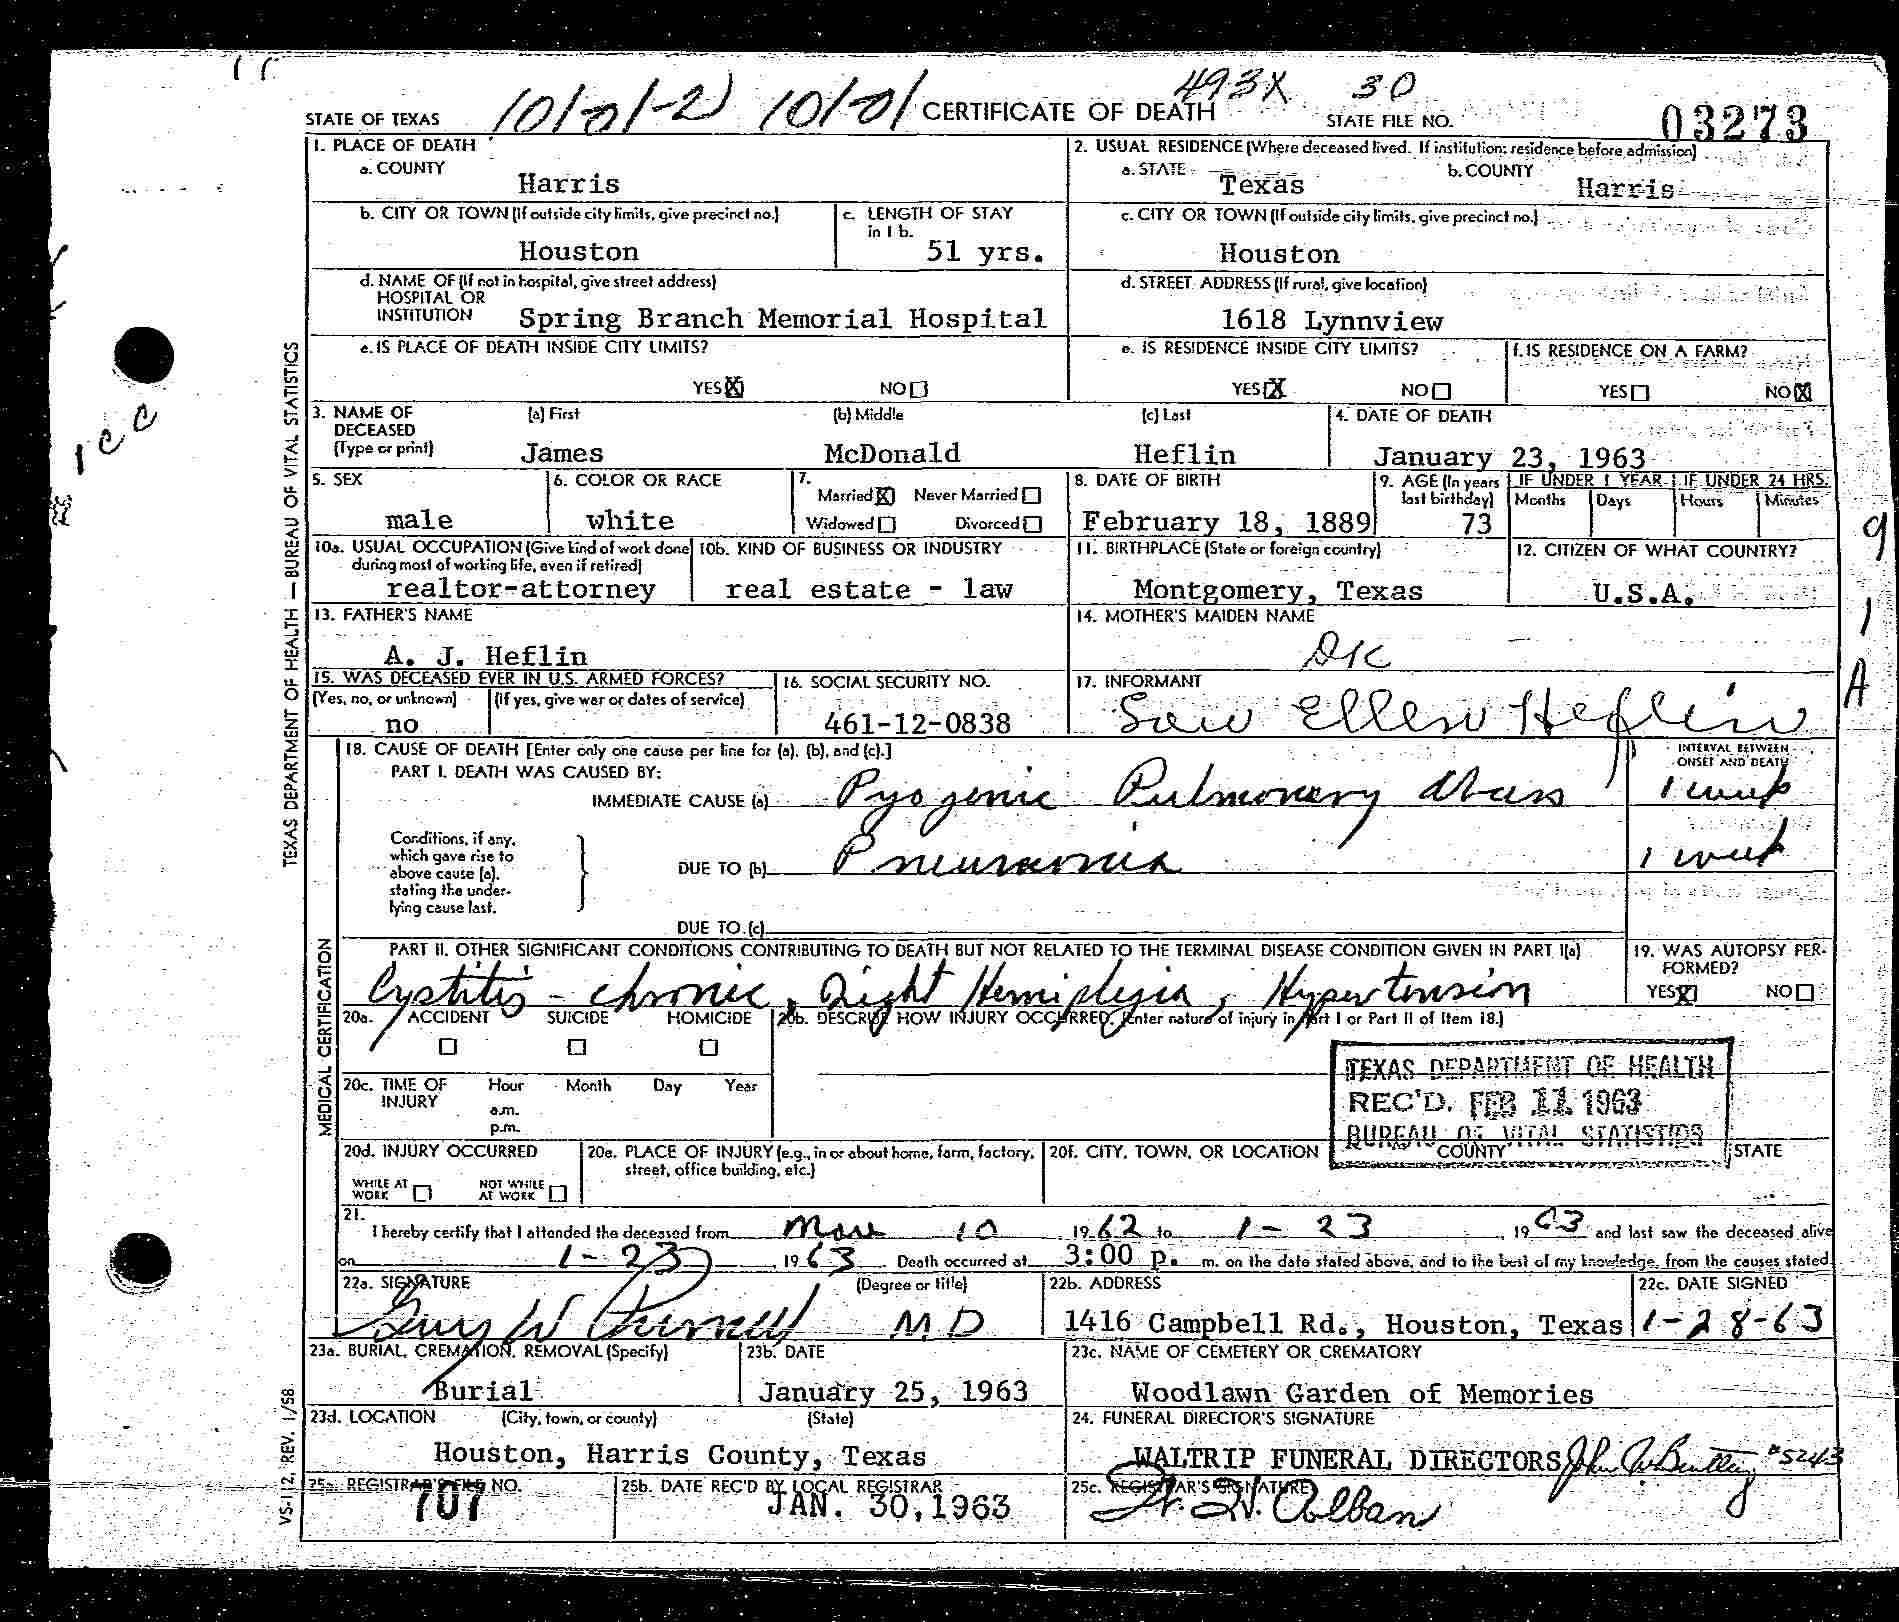 10/0/-2) 10/0/ 493X 30
STATE OF TEXAS CERTIFICATE OF DEATH STATE FILE NO. 03273
1. PLACE OF DEATH
a. COUNTY
Harris
2. USUAL RESIDENCE (Where deceased lived. If institution: residence before admission)
a. STATE b. COUNTY
Texas Harris
b. CITY OR TOWN (If outside city limits, give precinct no.) c. LENGTH OF STAY in 1 b.
Houston 51 yrs.
c. CITY OR TOWN (If outside city limits, give precinct no.)
Houston
d. NAME OF (If not in hospital, give street address)
HOSPITAL OR
INSTITUTION Spring Branch Memorial Hospital
d. STREET ADDRESS (If rural, give location)
1618 Lynnview
e. IS PLACE OF DEATH INSIDE CITY LIMITS?
YES X NO
e. IS RESIDENCE INSIDE CITY LIMITS? f. IS RESIDENCE ON A FARM?
YES X NO YES NO X
3. NAME OF DECEASED (Type or print) (a) First (b) Middle (c) Last 4. DATE OF DEATH
James McDonald Heflin January 23, 1963
5. SEX 6. COLOR OR RACE 7. Married X Never Married Widowed Divorced
male white
8. DATE OF BIRTH 9. AGE (In years last birthday) IF UNDER 1 YEAR IF UNDER 24 HRS.
Months Days Hours Minutes
February 18, 1889 73
10a. USUAL OCCUPATION (Give kind of work done during most of working life, even if retired) 10b. KIND OF BUSINESS OR INDUSTRY
realtor-attorney real estate - law
11. BIRTHPLACE (State or foreign country) 12. CITIZEN OF WHAT COUNTRY?
Montgomery, Texas U.S.A.
13. FATHER'S NAME 14. MOTHER'S MAIDEN NAME
A. J. Heflin DK
15. WAS DECEASED EVER IN U.S. ARMED FORCES? 16. SOCIAL SECURITY NO. 17. INFORMANT
(Yes, no, or unknown) (If yes, give war or dates of service)
no 461-12-0838 Sau Ellen Heflin
18. CAUSE OF DEATH [Enter only one cause per line for (a), (b), and (c).] INTERVAL BETWEEN ONSET AND DEATH
PART I. DEATH WAS CAUSED BY:
IMMEDIATE CAUSE (a) Pyogenic Pulmonary Abscess 1 week
Conditions, if any,
which gave rise to
above cause (a),
stating the under-
lying cause last.
DUE TO (b) Pneumonia 1 week
DUE TO (c)
PART II. OTHER SIGNIFICANT CONDITIONS CONTRIBUTING TO DEATH BUT NOT RELATED TO THE TERMINAL DISEASE CONDITION GIVEN IN PART I(a)
Cystitis - chronic, Right Hemiplegia, Hypertension
19. WAS AUTOPSY PER-
FORMED?
YES X NO
20a. ACCIDENT SUICIDE HOMICIDE 20b. DESCRIBE HOW INJURY OCCURRED. (Enter nature of injury in Part I or Part II of Item 18.)
20c. TIME OF INJURY Hour Month Day Year
a.m.
p.m.
TEXAS DEPARTMENT OF HEALTH
REC'D. FEB 11 1963
BUREAU OF VITAL STATISTICS
20d. INJURY OCCURRED 20e. PLACE OF INJURY (e.g., in or about home, farm, factory, street, office building, etc.) 20f. CITY, TOWN, OR LOCATION COUNTY STATE
WHILE AT WORK NOT WHILE AT WORK
21. I hereby certify that I attended the deceased from Mar 10 1962 to 1-23, 1963 and last saw the deceased alive
on 1-23, 1963. Death occurred at 3:00 p. m. on the date stated above, and to the best of my knowledge, from the causes stated.
22a. SIGNATURE (Degree or title) 22b. ADDRESS 22c. DATE SIGNED
W MD 1416 Campbell Rd., Houston, Texas 1-28-63
23a. BURIAL, CREMATION, REMOVAL (Specify) 23b. DATE 23c. NAME OF CEMETERY OR CREMATORY
Burial January 25, 1963 Woodlawn Garden of Memories
23d. LOCATION (City, town, or county) (State) 24. FUNERAL DIRECTOR'S SIGNATURE
Houston, Harris County, Texas WALTRIP FUNERAL DIRECTORS John W Bentley #5243
25a. REGISTRAR'S FILE NO. 25b. DATE REC'D BY LOCAL REGISTRAR 25c. REGISTRAR'S SIGNATURE
707 JAN. 30, 1963 W. Alban
TEXAS DEPARTMENT OF HEALTH — BUREAU OF VITAL STATISTICS
MEDICAL CERTIFICATION
VS-112, REV. 1/58
1 c c
9 1 A